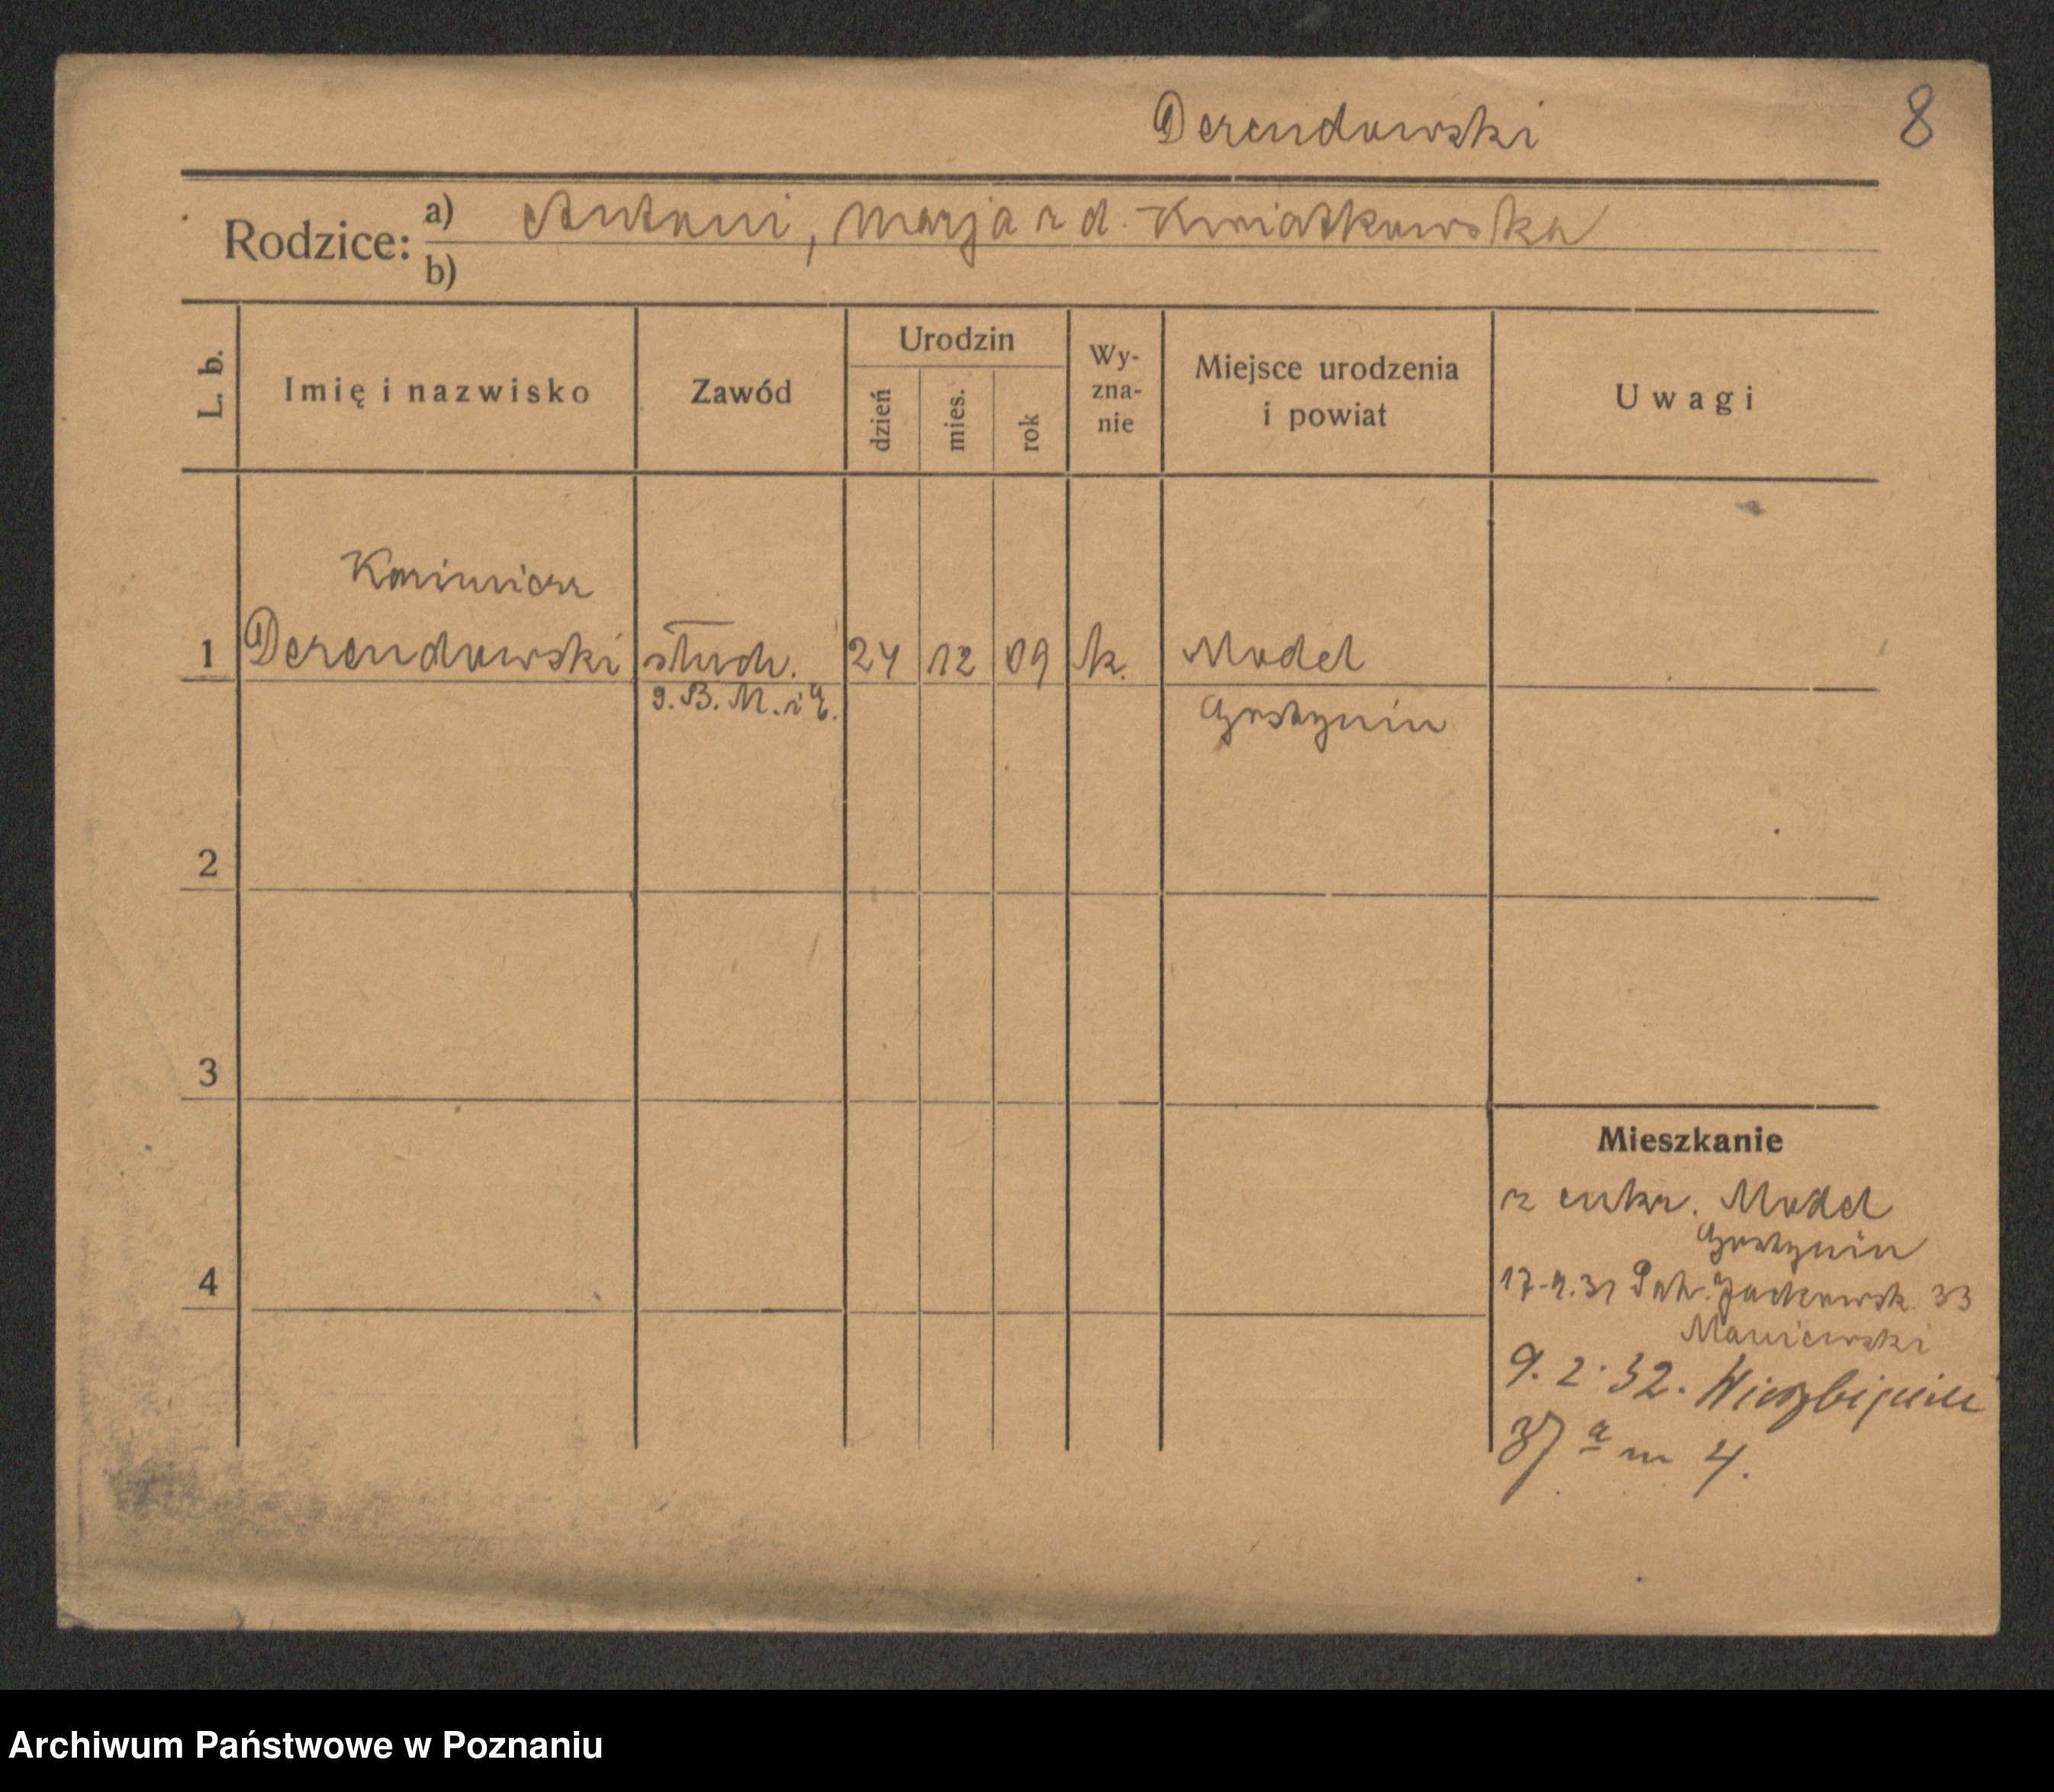 Derendowski
8
Rodzice: a) Antoni, Marja z d. Kwiatkowska
b)
L. b.
Imię i nazwisko
Zawód
Urodzin
dzień
mies.
rok
Wy-
zna-
nie
Miejsce urodzenia
i powiat
Uwagi
Kazimierz
1 Derendowski słuch. 24 12 09 k. Model
Gostynin
2
3
Mieszkanie
z cukr. Model
Gostynin
4
Jackowsk. 33
Maniewski
9. 2. 32.
37 a m 4.
Archiwum Państwowe w Poznaniu